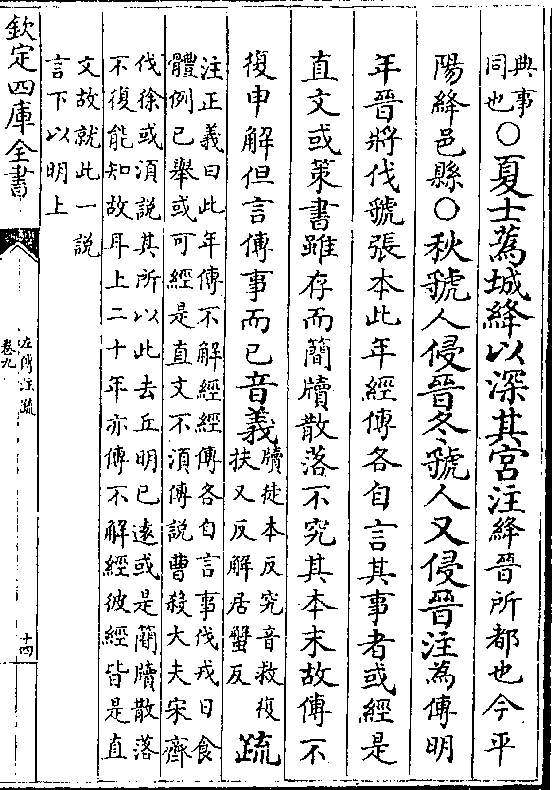 典事
同也○夏士蒍城絳以深其宫注絳晉所都也今平
陽絳邑縣○秋虢人侵晉冬虢人又侵晉注為傳明
年晉將伐虢張本此年經傳各自言其事者或經是
直文或策書雖存而簡牘散落不究其本末故傳不
復申解但言傳事而已音義
牘徒本反究音救復
扶又反解居蟹反
疏
注正義曰此年傳不解經經傳各自言事伐戎日食
體例已舉或可經是直文不湏傳說曹殺大夫宋齊
伐徐或湏說其所以此去丘明已遠或是簡牘散落
不復能知故耳上二十年亦傳不解經彼經皆是直
文故就此一說
言下以明上
欽定四庫全書
左傳注疏
卷九
十四